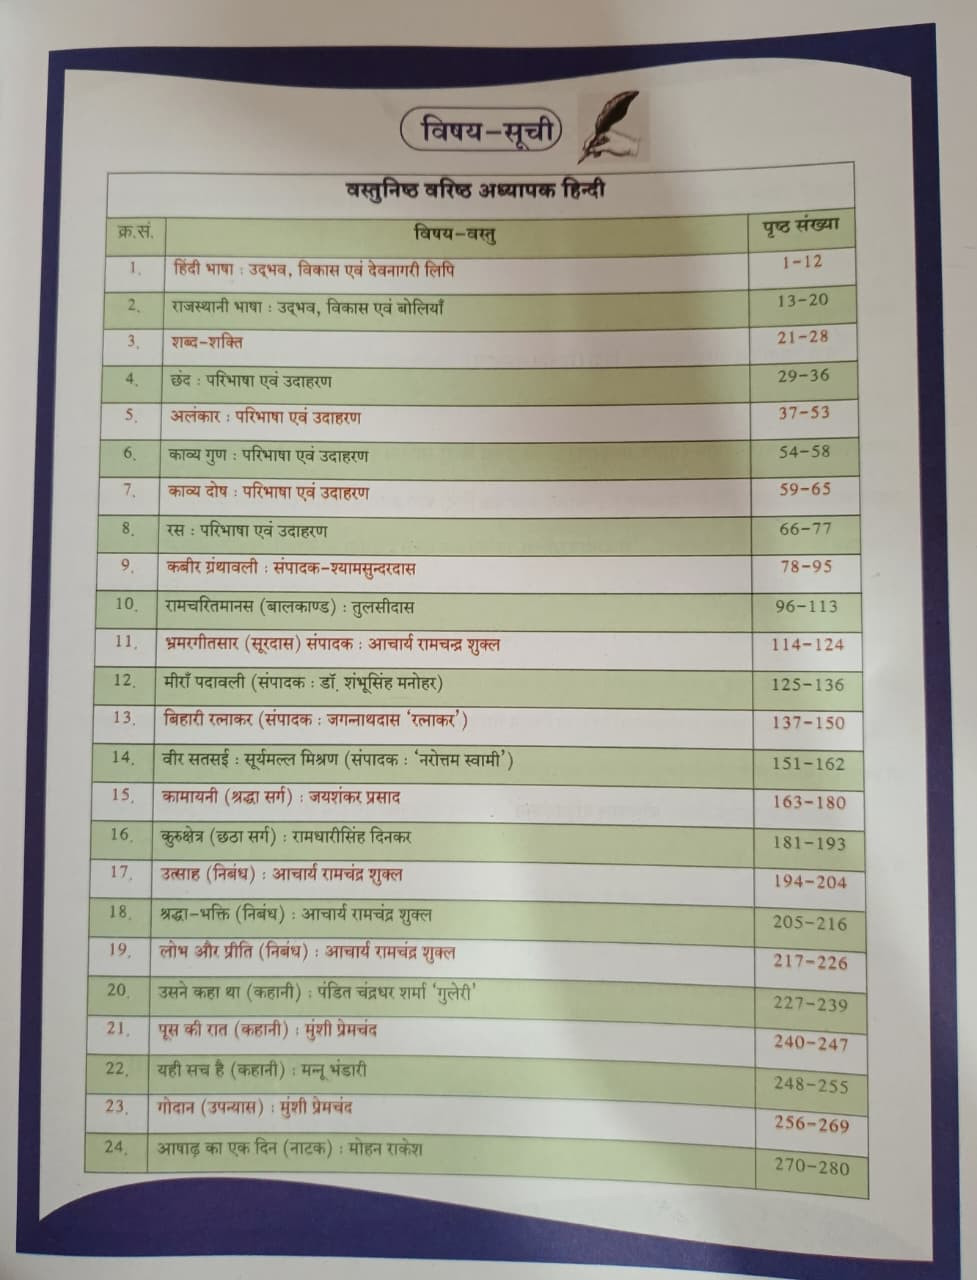 विषय-सूची
वस्तुनिष्ठ वरिष्ठ अध्यापक हिन्दी
क्र.सं. विषय-वस्तु पृष्ठ संख्या
1. हिंदी भाषा : उद्भव, विकास एवं देवनागरी लिपि 1-12
2. राजस्थानी भाषा : उद्भव, विकास एवं बोलियाँ 13-20
3. शब्द-शक्ति 21-28
4. छंद : परिभाषा एवं उदाहरण 29-36
5. अलंकार : परिभाषा एवं उदाहरण 37-53
6. काव्य गुण : परिभाषा एवं उदाहरण 54-58
7. काव्य दोष : परिभाषा एवं उदाहरण 59-65
8. रस : परिभाषा एवं उदाहरण 66-77
9. कबीर ग्रंथावली : संपादक-श्यामसुन्दरदास 78-95
10. रामचरितमानस (बालकाण्ड) : तुलसीदास 96-113
11. भ्रमरगीतसार (सूरदास) संपादक : आचार्य रामचन्द्र शुक्ल 114-124
12. मीराँ पदावली (संपादक : डॉ. शंभूसिंह मनोहर) 125-136
13. बिहारी रत्नाकर (संपादक : जगन्नाथदास 'रत्नाकर') 137-150
14. वीर सतसई : सूर्यमल्ल मिश्रण (संपादक : 'नरोत्तम स्वामी') 151-162
15. कामायनी (श्रद्धा सर्ग) : जयशंकर प्रसाद 163-180
16. कुरुक्षेत्र (छठा सर्ग) : रामधारीसिंह दिनकर 181-193
17. उत्साह (निबंध) : आचार्य रामचंद्र शुक्ल 194-204
18. श्रद्धा-भक्ति (निबंध) : आचार्य रामचंद्र शुक्ल 205-216
19. लोभ और प्रीति (निबंध) : आचार्य रामचंद्र शुक्ल 217-226
20. उसने कहा था (कहानी) : पंडित चंद्रधर शर्मा 'गुलेरी' 227-239
21. पूस की रात (कहानी) : मुंशी प्रेमचंद 240-247
22. यही सच है (कहानी) : मन्नू भंडारी 248-255
23. गोदान (उपन्यास) : मुंशी प्रेमचंद 256-269
24. आषाढ़ का एक दिन (नाटक) : मोहन राकेश 270-280